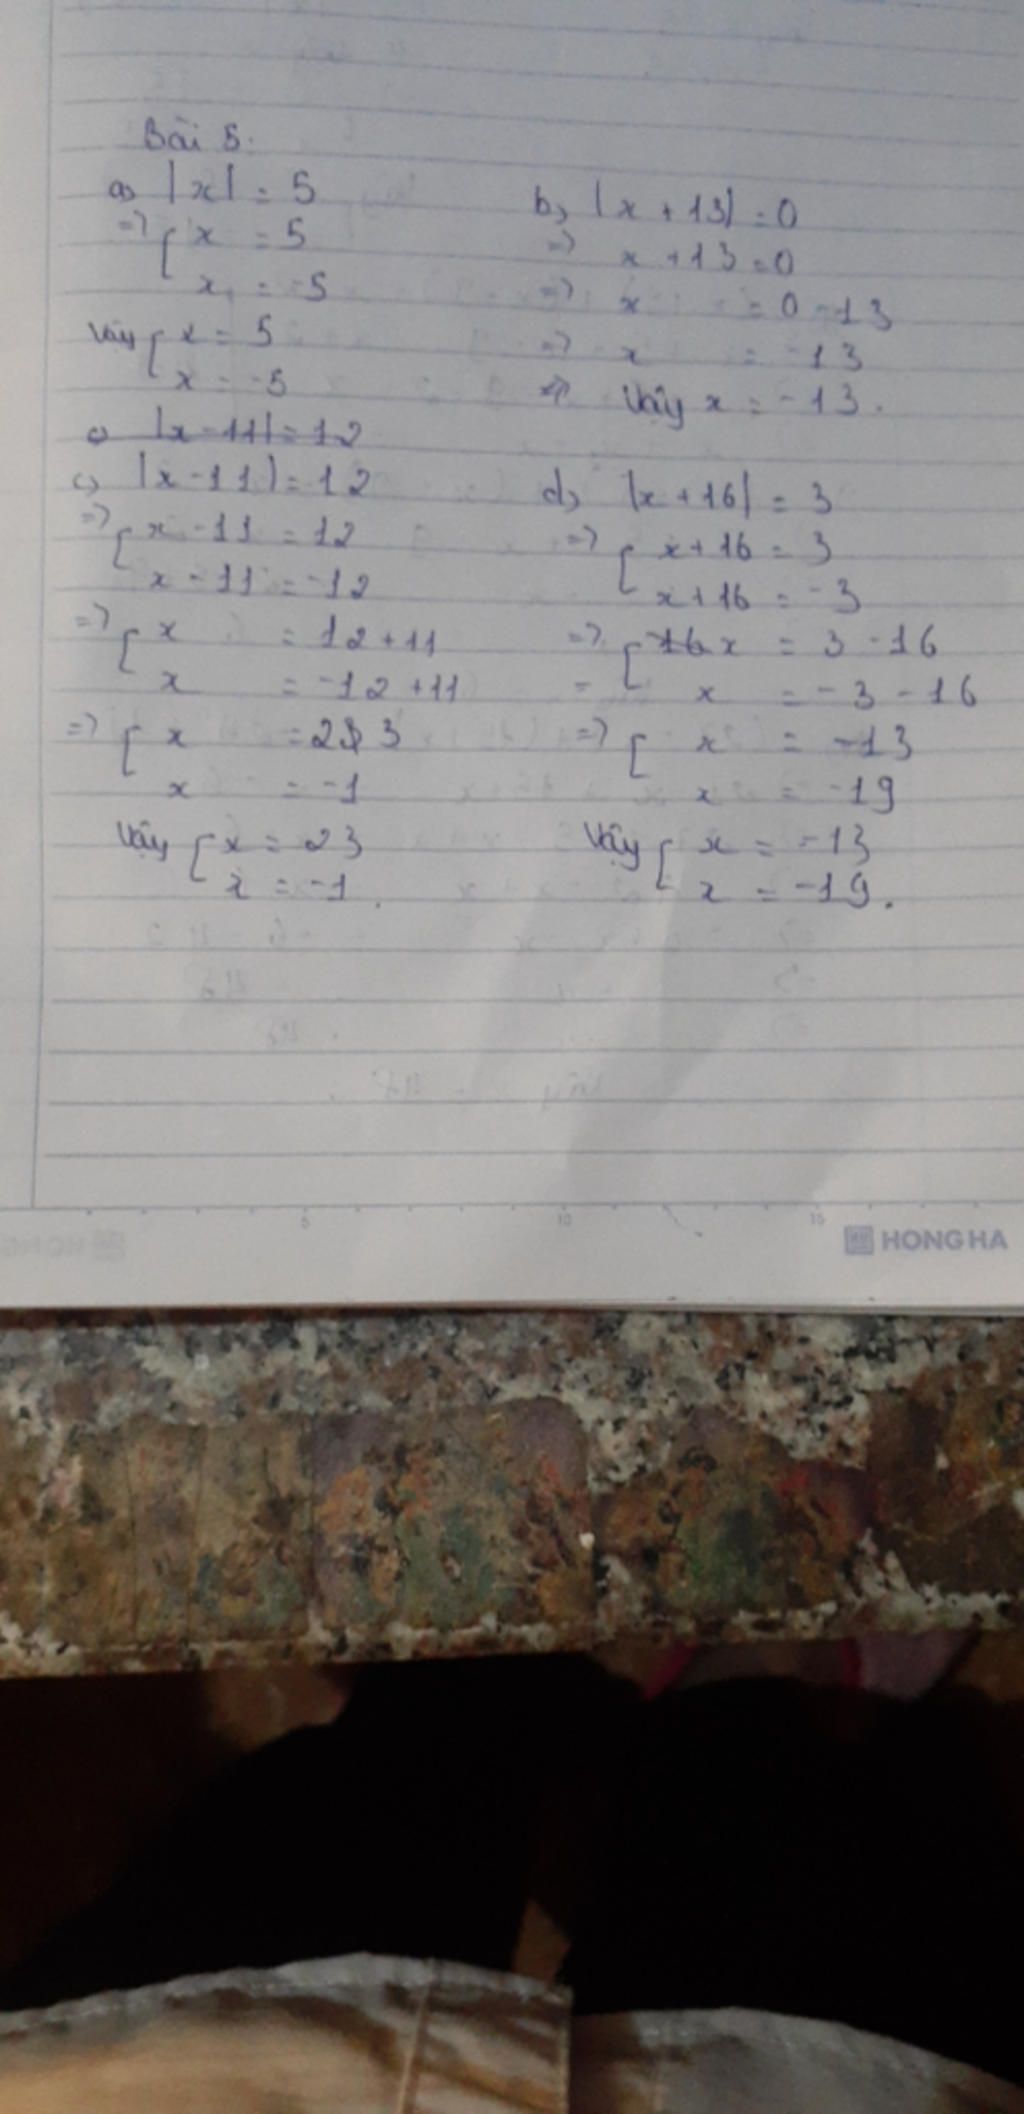 Bài 5:
a, |x| = 5
=> [ x = 5
x = -5
Vậy [ x = 5
x = -5
b, |x + 13| = 0
=> x + 13 = 0
=> x = 0 - 13
=> x = -13
=> Vậy x = -13.
c, |x - 11| = 12
c, |x - 11| = 12
=> [ x - 11 = 12
x - 11 = -12
=> [ x = 12 + 11
x = -12 + 11
=> [ x = 23
x = -1
Vậy [ x = 23
x = -1.
d, |x + 16| = 3
=> [ x + 16 = 3
x + 16 = -3
=> [ 16 x = 3 - 16
= x = -3 - 16
=> [ x = -13
x = -19
Vậy [ x = -13
x = -19.
5 10 15
HONG HA